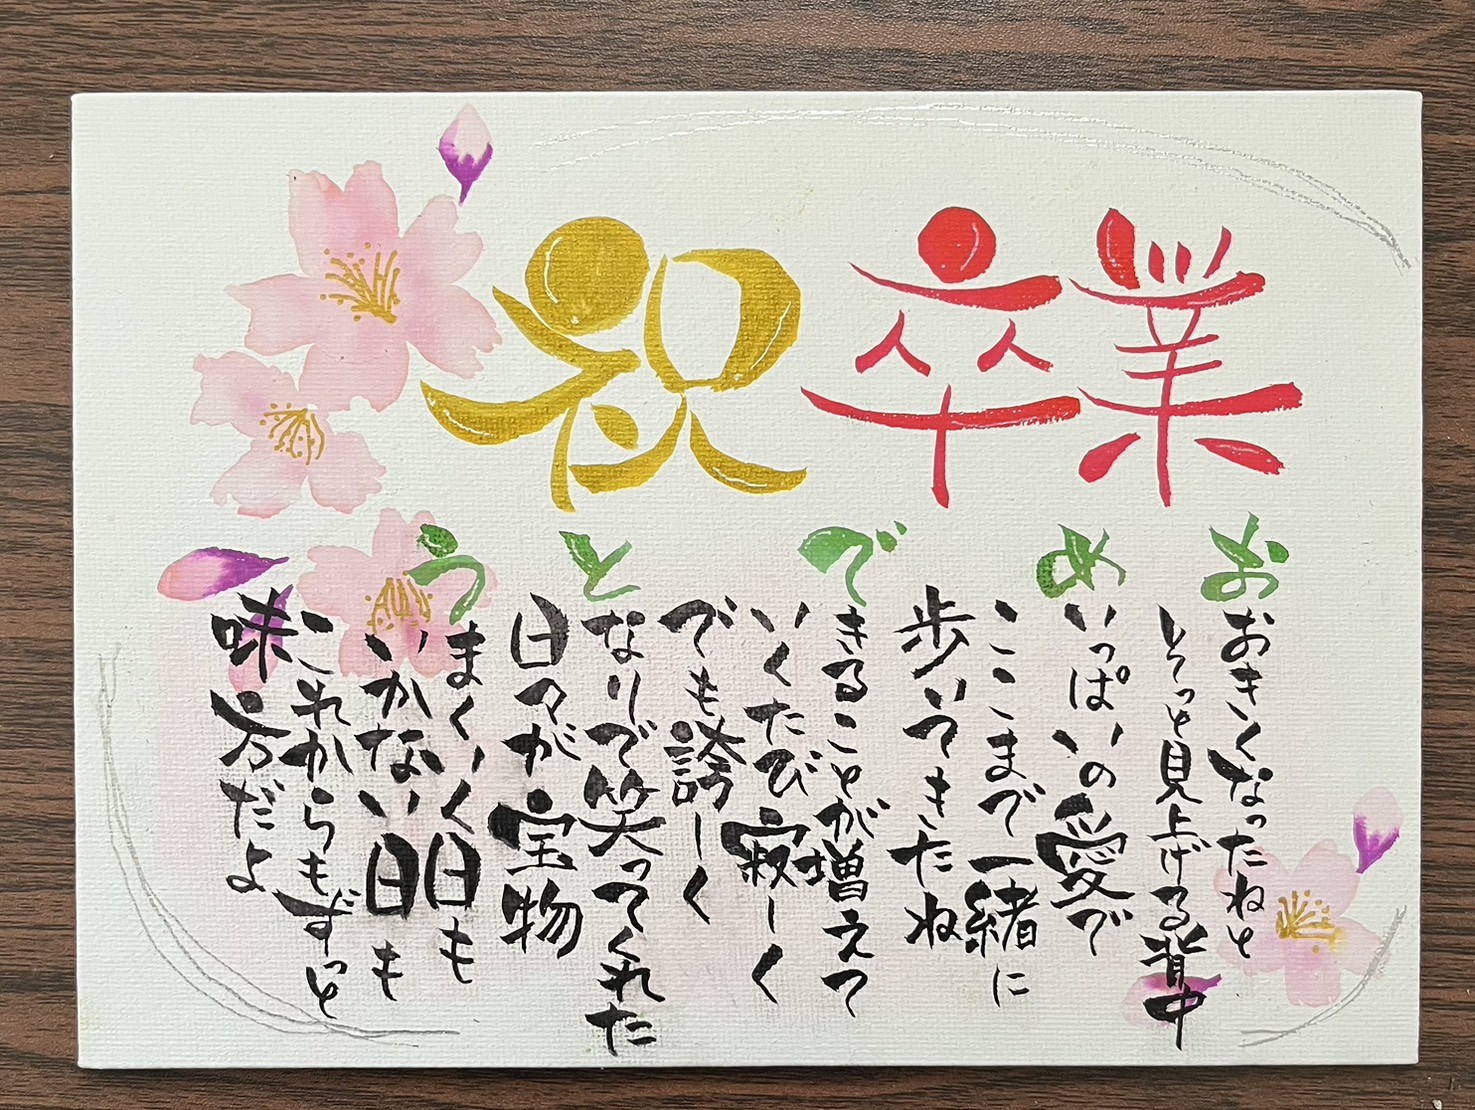 祝卒業
おおきくなったねと
そっと見上げる背中
めいっぱいの愛で
ここまで一緒に
歩いてきたね
できることが増えて
いくたび寂しく
でも誇しく
となりで笑ってくれた
日々が宝物
うまくいく日も
いかない日も
これからもずっと
味方だよ